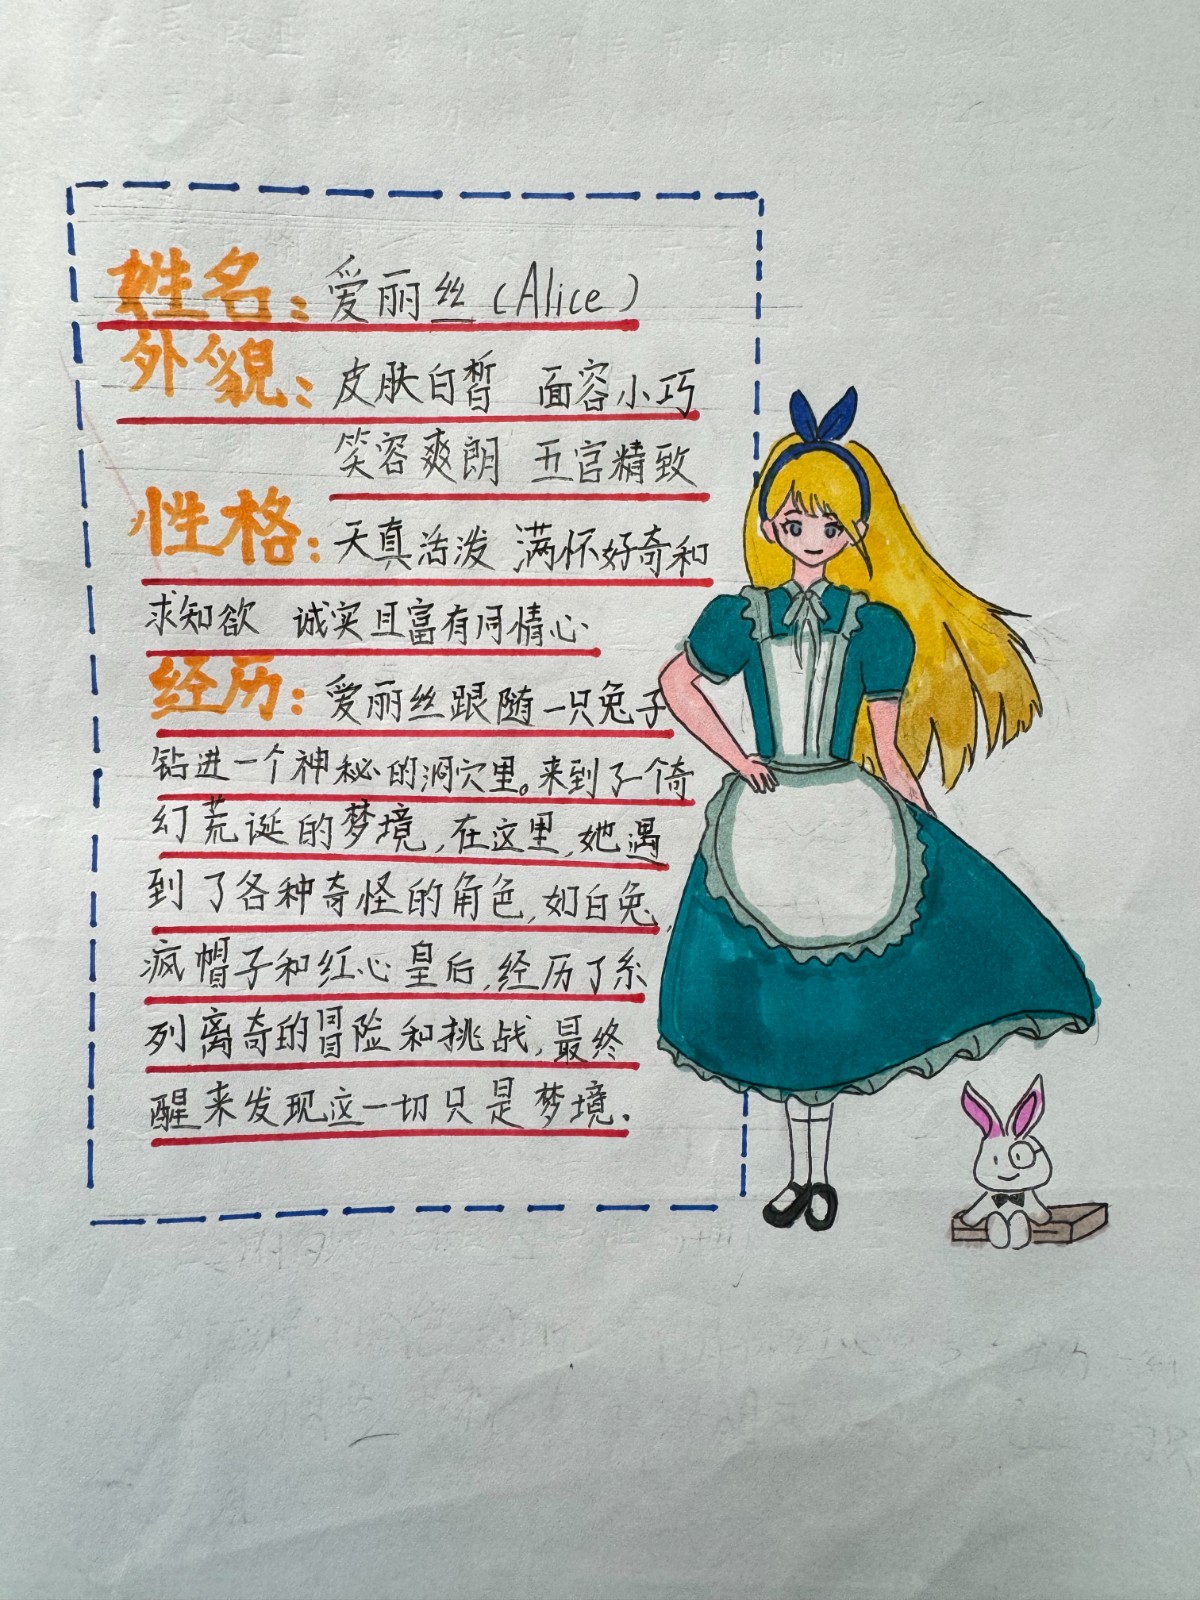 姓名：爱丽丝（Alice）
外貌：皮肤白皙 面容小巧
笑容爽朗 五官精致
性格：天真活泼 满怀好奇和
求知欲 诚实且富有同情心
经历：爱丽丝跟随一只兔子
钻进一个神秘的洞穴里。来到了一个奇
幻荒诞的梦境，在这里，她遇
到了各种奇怪的角色，如白兔，
疯帽子和红心皇后，经历了系
列离奇的冒险和挑战，最终
醒来发现这一切只是梦境。